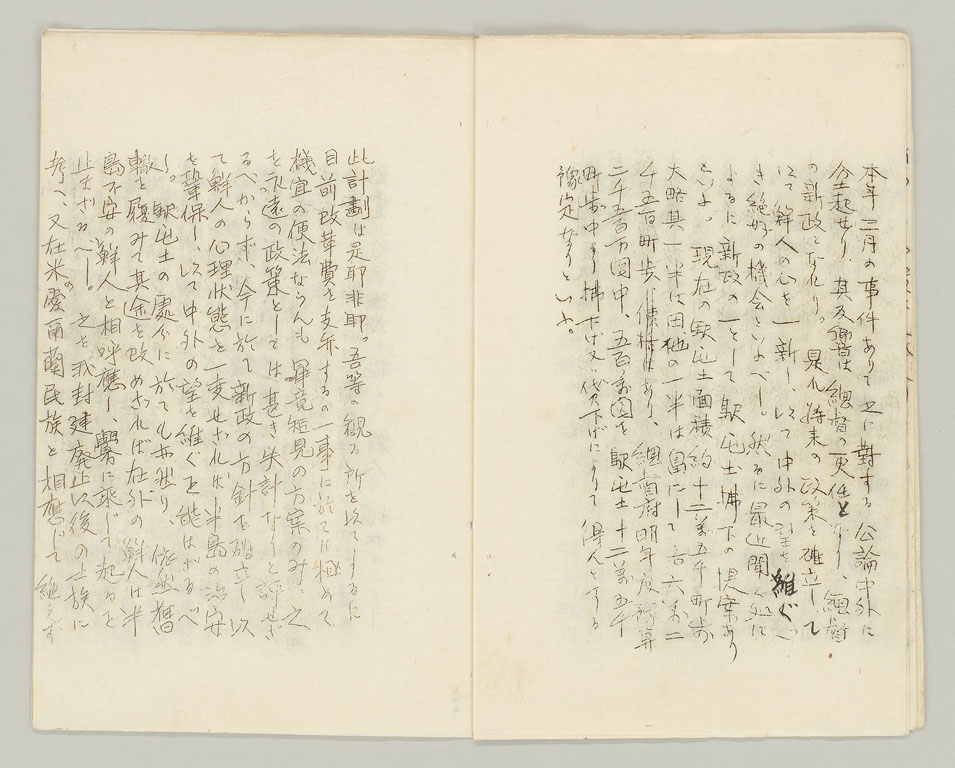 本年三月の事件ありて之に對する公論中外に
分起せり、其反響は總督の更任となり、總督
の新政となれり。是れ將来の政策を確立して
以て鮮人の心を一新し、以て中外の望を維ぐべ
き絶好の機会といふべし。然るに最近聞く処に
よるに新政の一として駅屯土拂下の提案あり
といふ。現在の駅屯土面積約十二萬五千町歩
大略其一半は田他の一半は畠にして
千五百町歩價格あり、總督府明年度豫算
二千五百万圓中、五百萬圓を駅屯土十二萬五千
町歩中より拂下げ又は貸下げによりて得んとする
豫定なりといふ。
此計劃は是耶非耶。吾等の観る所を以てするに
目前改革費を支弁するの一事に於ては極めて
機宜の便法ならんも畢竟短見の方案のみ、之
を永遠の政策としては甚しき失計なりと評せざ
るべからず、今に於て新政の方針を確立し以
て鮮人の心理状態を一変せざれば半島の治安
を鞏保し、以て中外の望を維ぐを能はざるべ
し。駅屯土の處分に於ても亦然り、依然舊
轍を履みて其途を改めざれば在外の鮮人は半
島不安の鮮人と相呼應し、釁に乘じて起ること
止まざるべし。之を我封建廢止以後の士族に
考へ、又在米の愛爾蘭民族と相應じて絶えず